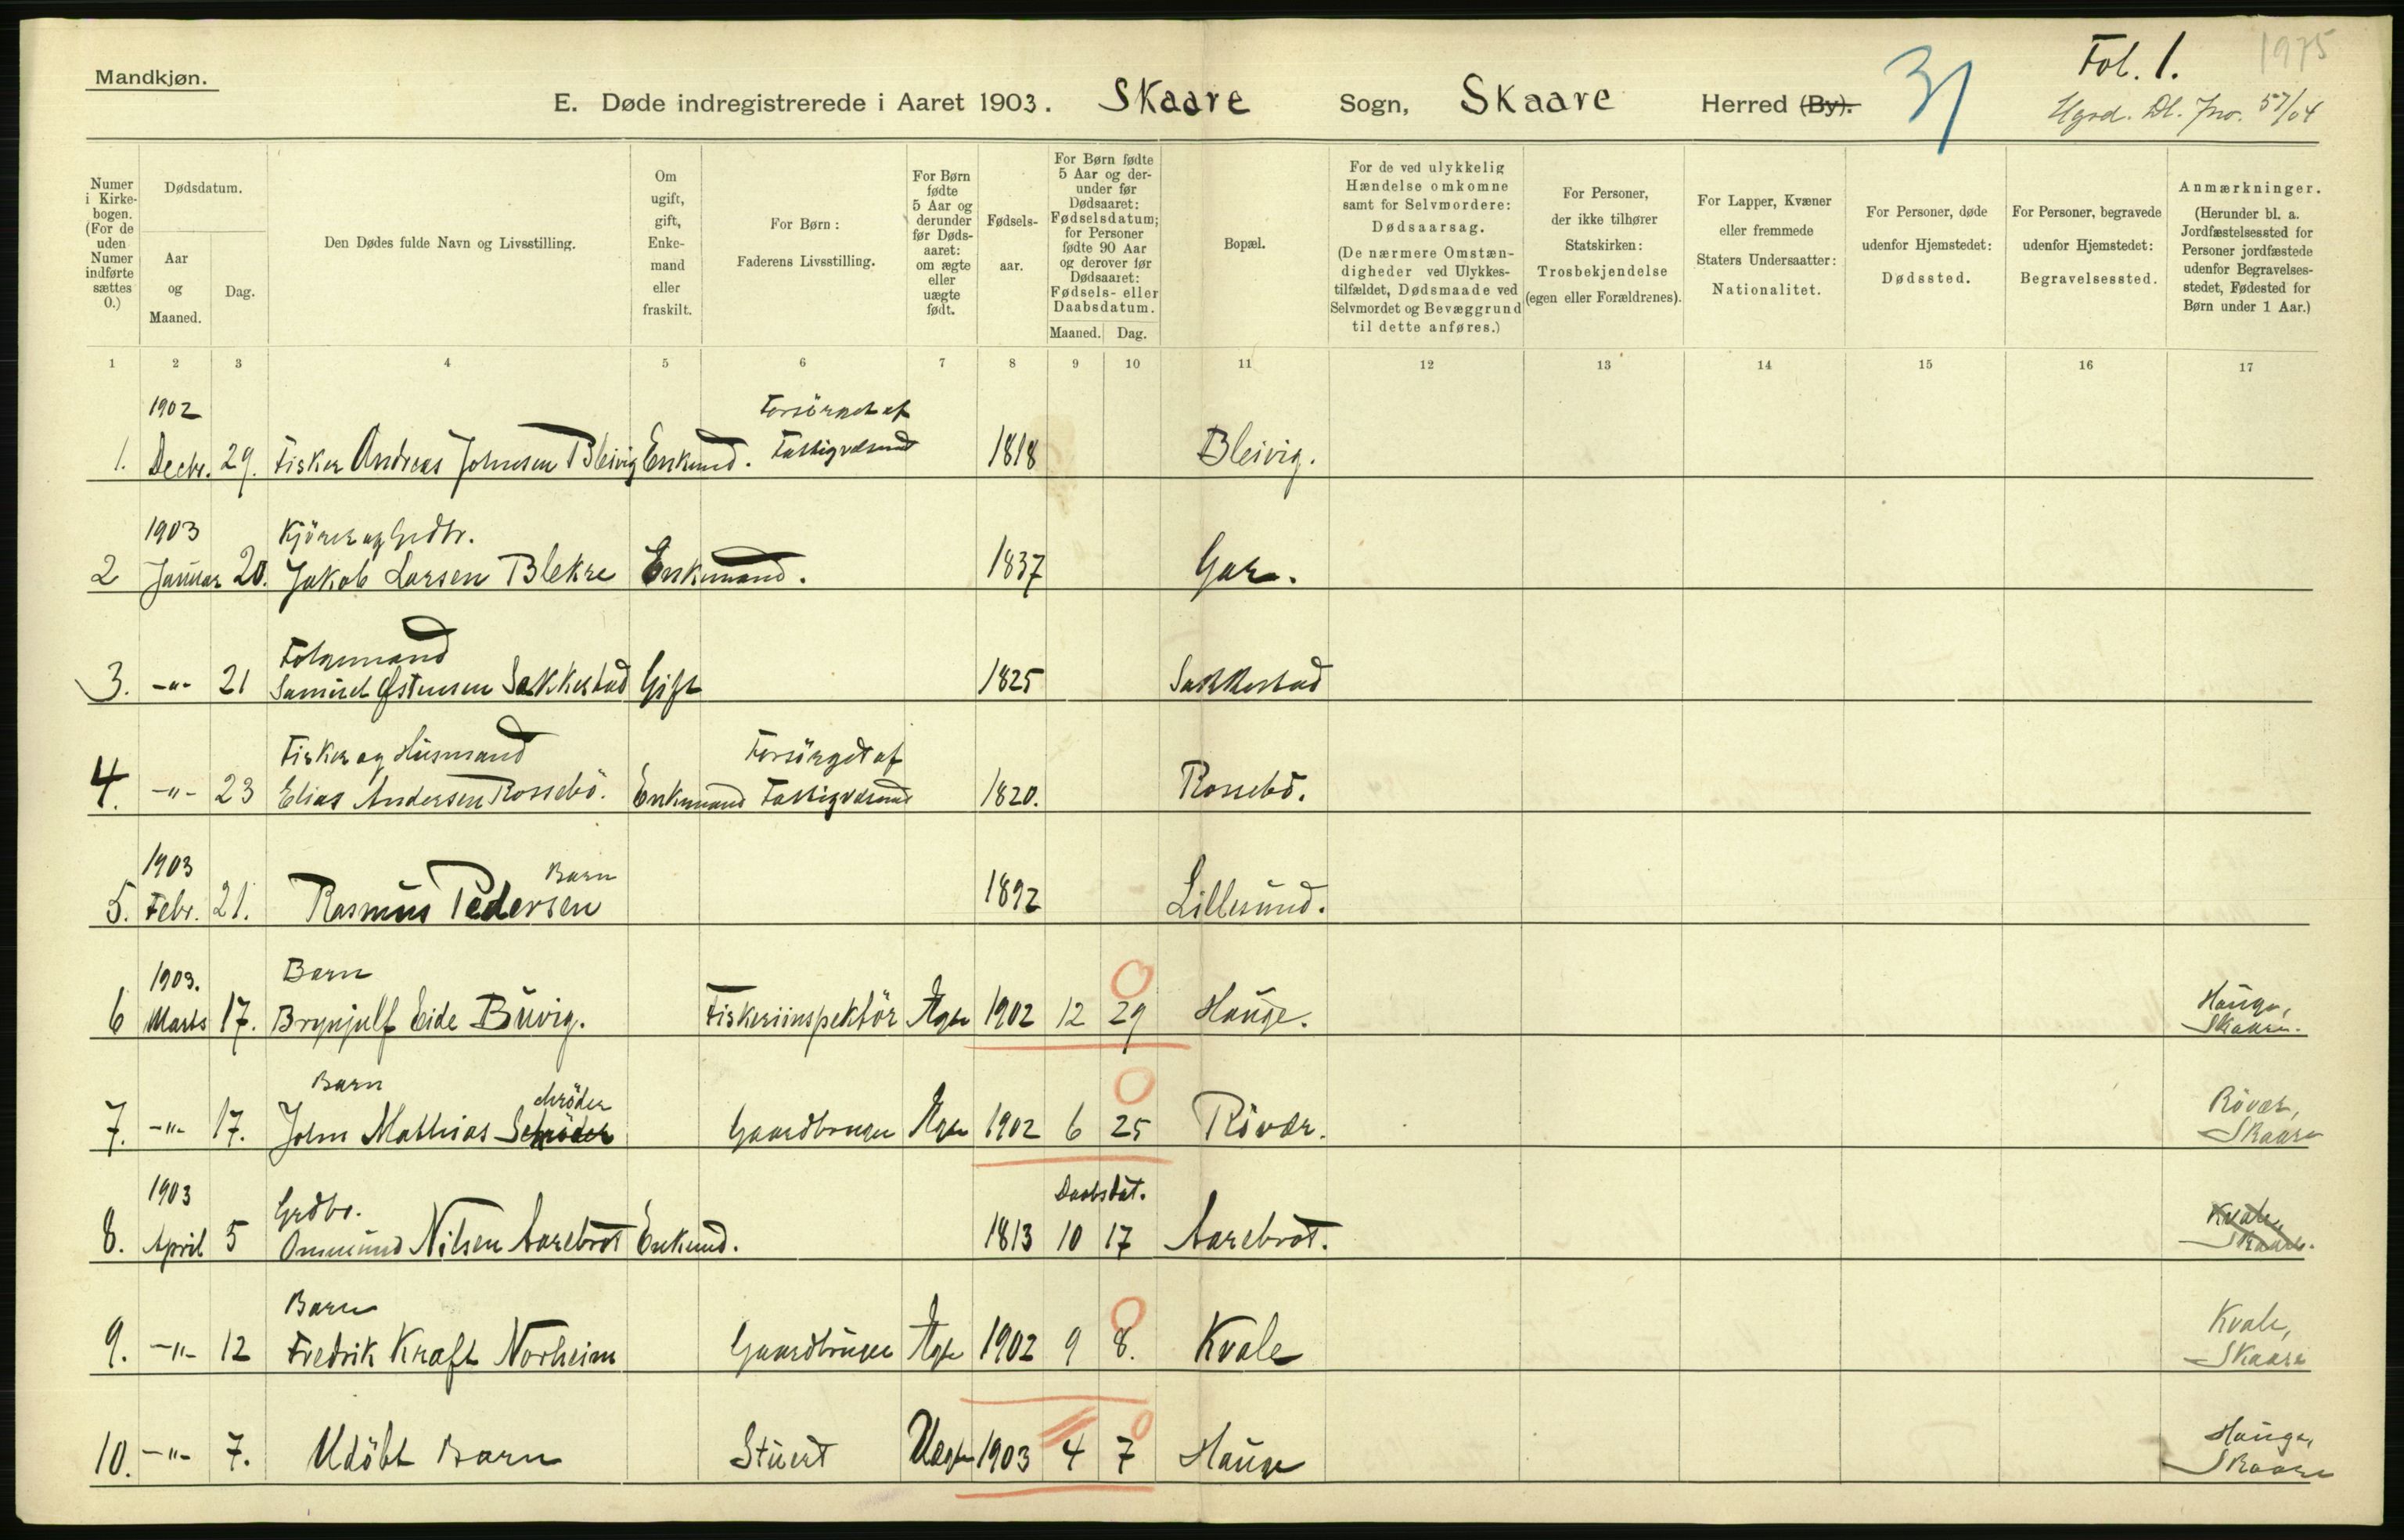 Mandkjøn.
E. Døde indregistrerede i Aaret 1903. Skaare Sogn, Skaare Herred (By).
31
Fol. 1.
1975
Dl. Jno. 57/04
Numer i Kirkebogen. (For de uden Numer indførte sættes 0.)
Dødsdatum.
Aar og Maaned.
Dag.
Den Dødes fulde Navn og Livsstilling.
Om ugift, gift, Enkemand eller fraskilt.
For Børn: Faderens Livsstilling.
For Børn fødte 5 Aar og derunder før Dødsaaret: om ægte eller uægte født.
Fødselsaar.
For Børn fødte 5 Aar og derunder før Dødsaaret: Fødselsdatum; for Personer fødte 90 Aar og derover før Dødsaaret: Fødsels- eller Daabsdatum.
Maaned. Dag.
Bopæl.
For de ved ulykkelig Hændelse omkomne samt for Selvmordere: Dødsaarsag. (De nærmere Omstændigheder ved Ulykkestilfældet, Dødsmaade ved Selvmordet og Bevæggrund til dette anføres.)
For Personer, der ikke tilhører Statskirken: Trosbekjendelse (egen eller Forældrenes).
For Lapper, Kvæner eller fremmede Staters Undersaatter: Nationalitet.
For Personer, døde udenfor Hjemstedet: Dødssted.
For Personer, begravede udenfor Hjemstedet: Begravelsessted.
Anmærkninger. (Herunder bl. a. Jordfæstelsessted for Personer jordfæstede udenfor Begravelsesstedet, Fødested for Børn under 1 Aar.)
1 2 3 4 5 6 7 8 9 10 11 12 13 14 15 16 17
1902 Forsörget af
1. Decbr. 29. Fisker Andreas Johnsen Bleivig Enkmd. Fattigvæsenet 1818 Bleivig.
1903 Kjörer og Grdbr.
2 Januar 20. Jakob Larsen Blekre Enkmand. 1837 Gar.
Folgemand
3. -"- 21 Samuel Østensen Sakkestad Gift 1825 Sakkestad
Fisker og Husmand Forsörget af
4. -"- 23 Elias Andersen Rossebö. Enkmand Fattigvæsenet 1820. Rossebö.
1903 Barn
5. Febr. 21. Rasmus Pedersen 1892 Lillesund.
1903. Barn
6 Marts 17. Brynjulf Eide Buvig. Fiskeriinspektör Ægte 1902 12 29 Hauge. Hauge, Skaare.
Barn chröder
7. -"- 17. John Mathias Schröder Gaardbruger Ægte 1902 6 25 Rövær. Rövær, Skaare
1903 Grdbr. Daabsdat.
8. April 5 Ommund Nilsen Aarebrot Enkemd. 1813 10 17 Aarebrot. Kvale, Skaare.
Barn
9. -"- 12 Fredrik Kraft Norheim Gaardbruger Ægte 1902 9 8. Kvale Kvale, Skaare
10. -"- 7. Udöbt Barn Stuert Uægte 1903 4 7 Hauge Hauge, Skaare